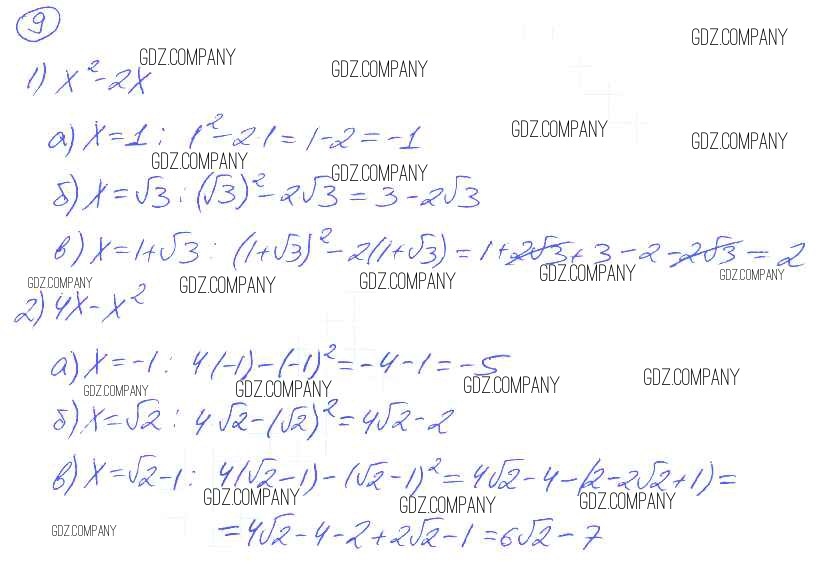 9
GDZ.COMPANY
GDZ.COMPANY
GDZ.COMPANY
1) x² - 2x
GDZ.COMPANY
GDZ.COMPANY
а) x = 1 : 1² - 2·1 = 1 - 2 = -1
GDZ.COMPANY
GDZ.COMPANY
б) x = √3 : (√3)² - 2√3 = 3 - 2√3
в) x = 1+√3 : (1+√3)² - 2(1+√3) = 1 + 2√3 + 3 - 2 - 2√3 = 2
GDZ.COMPANY
GDZ.COMPANY
GDZ.COMPANY
GDZ.COMPANY
GDZ.COMPANY
2) 4x - x²
а) x = -1 : 4(-1) - (-1)² = -4 - 1 = -5
GDZ.COMPANY
GDZ.COMPANY
GDZ.COMPANY
GDZ.COMPANY
б) x = √2 : 4√2 - (√2)² = 4√2 - 2
в) x = √2 - 1 : 4(√2 - 1) - (√2 - 1)² = 4√2 - 4 - (2 - 2√2 + 1) =
GDZ.COMPANY
GDZ.COMPANY
GDZ.COMPANY
GDZ.COMPANY
= 4√2 - 4 - 2 + 2√2 - 1 = 6√2 - 7